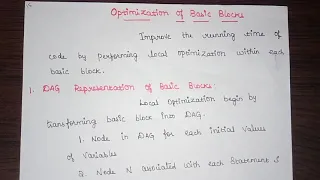 Optimization of Basic Blocks
Improve the running time of
code by performing local optimization within each
basic block.
1. DAG Representation of Basic Blocks:
Local Optimization begin by
transforming basic block into DAG.
1. Node in DAG for each initial values
of variables
2. Node N associated with each Statement S